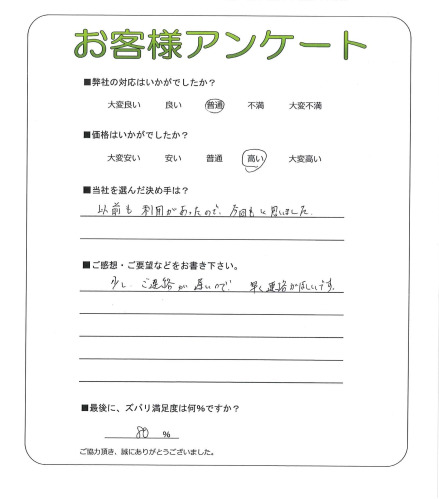 お客様アンケート
■弊社の対応はいかがでしたか？
大変良い 良い 普通 不満 大変不満
■価格はいかがでしたか？
大変安い 安い 普通 高い 大変高い
■当社を選んだ決め手は？
以前も利用があったので、今回もと思いました
■ご感想・ご要望などをお書き下さい。
少しご連絡が遅いので 早く連絡がほしいです。
■最後に、ズバリ満足度は何％ですか？
80 ％
ご協力頂き、誠にありがとうございました。